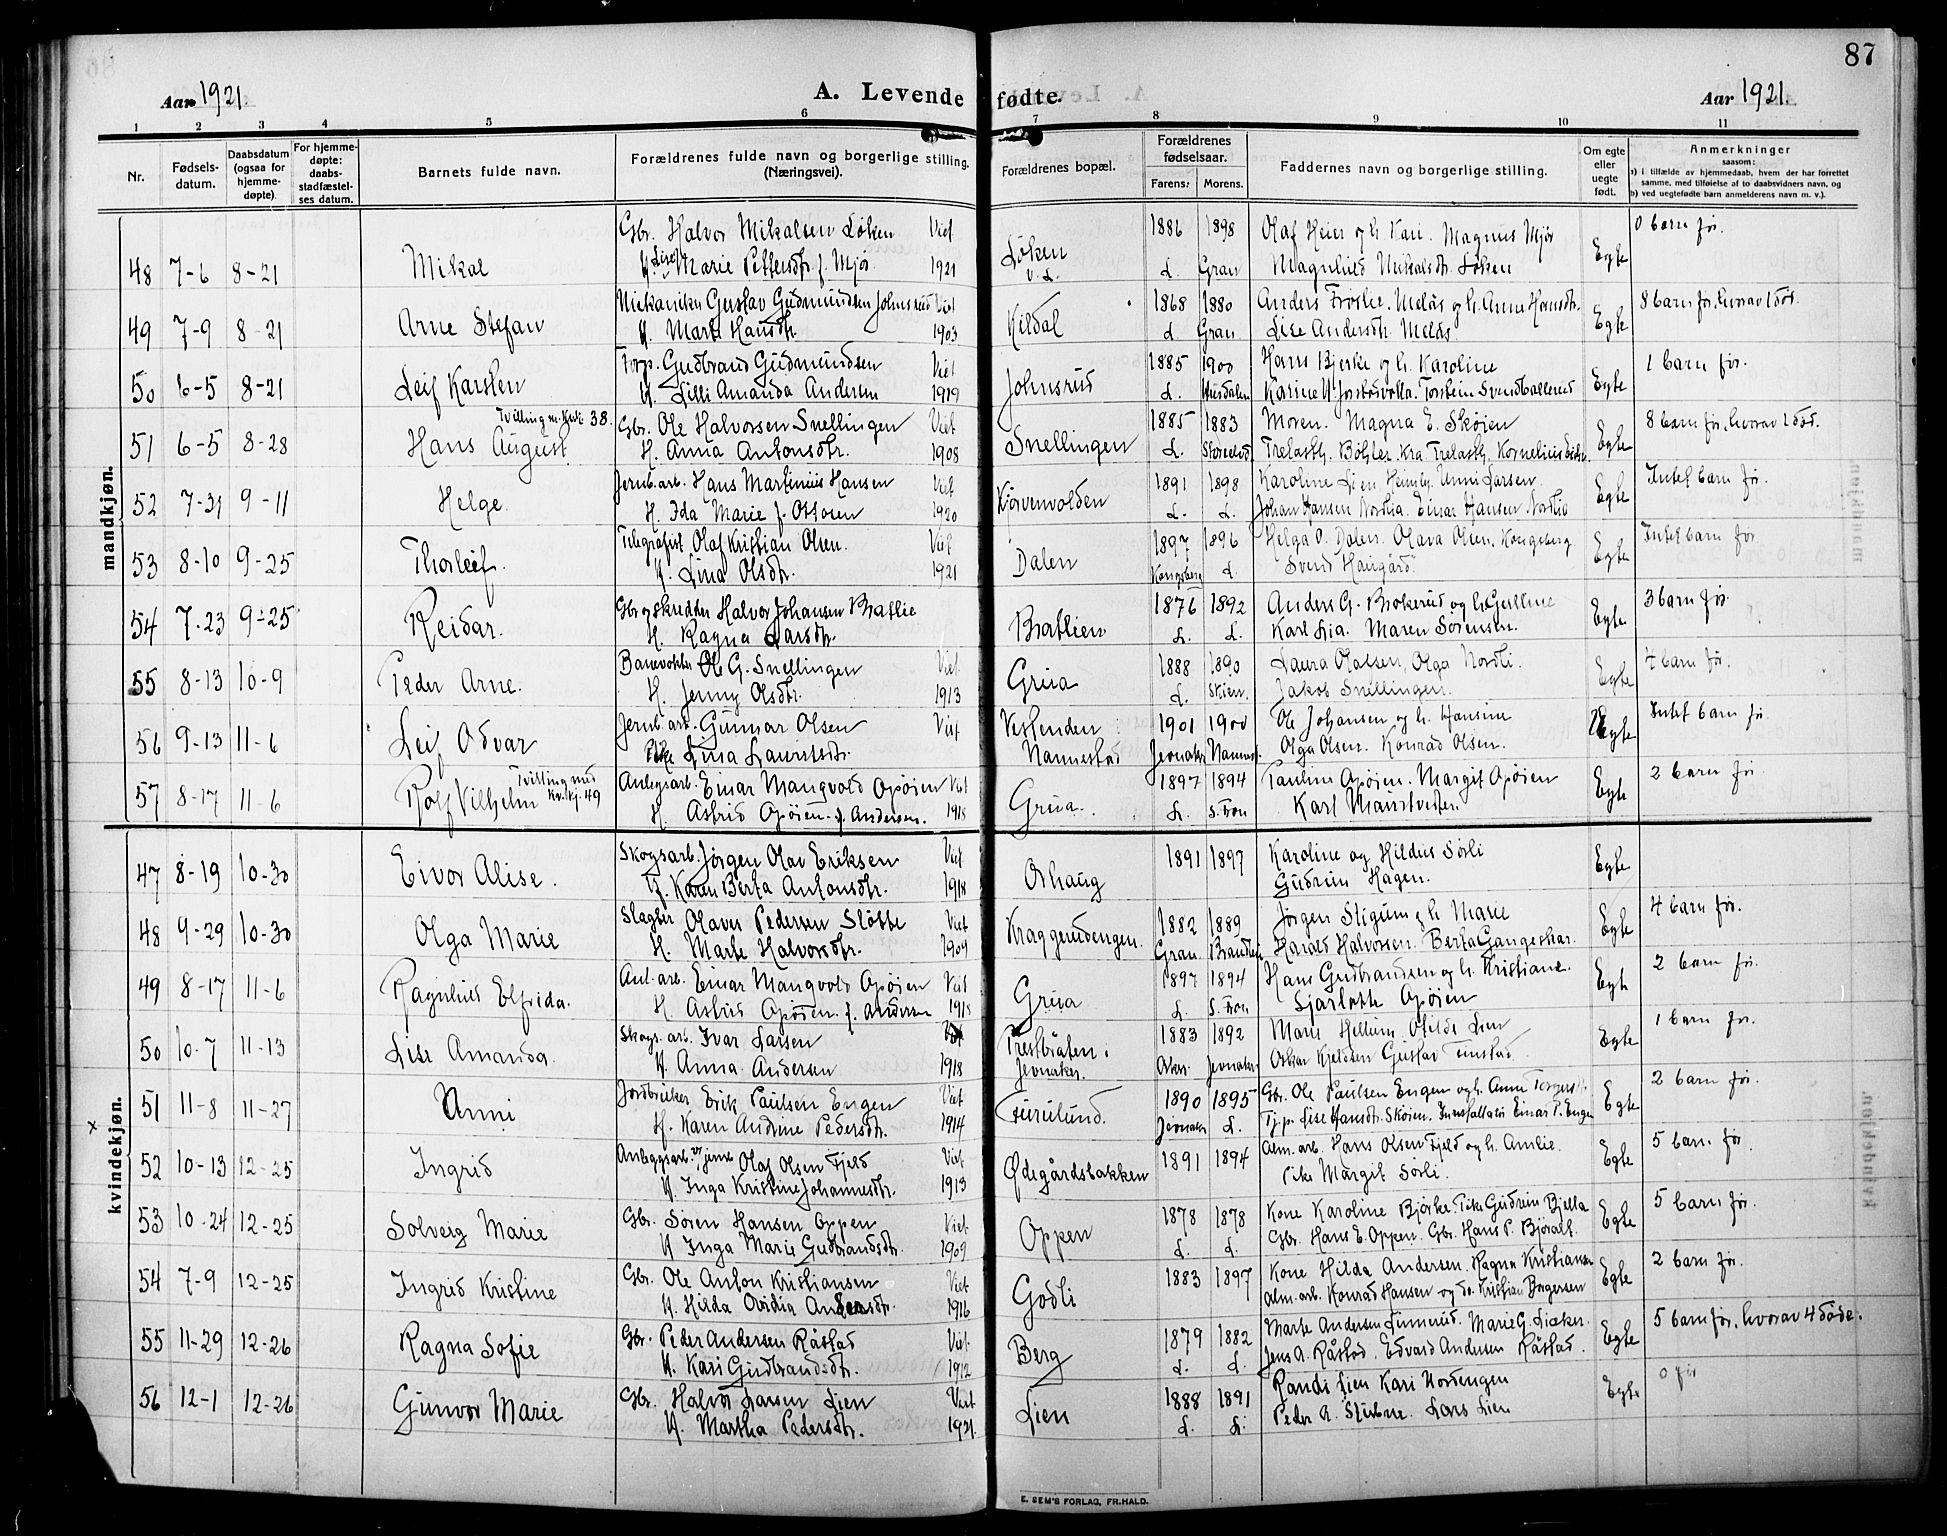 87
Aar 1921. A. Levende fødte. Aar 1921.
1 2 3 4 5 6 7 8 9 10 11
Nr. Fødsels-datum. Daabsdatum (ogsaa for hjemme-døpte). For hjemme-døpte: daabs-stadfæstel-ses datum. Barnets fulde navn. Forældrenes fulde navn og borgerlige stilling. (Næringsvei). Forældrenes bopæl. Forældrenes fødselsaar. Farens: Morens. Faddernes navn og borgerlige stilling. Om egte eller uegte født. Anmerkninger saasom: a) i tilfælde av hjemmedaab, hvem der har forrettet samme, med tilføielse af to daabsvidners navn, og b) ved uegtefødte barn anmelderens navn m. v.).
mandkjøn.
Gbr. Halvor Mikalsen Løken Viet 1886 1898 Olaf Heier og h. Kari. Magnus Mjør 0 barn før.
48 7-6 8-21 Mikal H. Lise Marie Pettersdtr. f. Mjør 1921 Løken v. L. L. Gran Magnhild Mikalsdtr. Løken Egte
Mekaniker Gustav Gudmundsen Johnsrud Viet 1868 1880 Anders Froslie. Melås og h. Anne Hansdtr. 8 barn før, hvorav 1 død.
49 7-9 8-21 Arne Stefan H. Marte Hansdtr. 1903 Kildal L. Gran Lise Andersdtr. Melås Egte
Forp. Gudbrand Gudmundsen Viet 1885 1900 Hans Bjerke og h. Karoline 1 barn før.
50 6-5 8-21 Leif Karsten H. Lilli Amanda Andersen 1919 Johnsrud L. Hurdalen Karine Torstein Svendballerud Egte
Tvilling m. Kvk. 38. Gbr. Ole Halvorsen Snellingen Viet 1885 1883 Moren. Magna E. Skøien 8 barn før, hvorav 1 død.
51 6-5 8-28 Hans August H. Anna Antonsdtr. 1908 Snellingen L. Trelasth. Böhler. Kra. Trelasth. Kornelius Egte
Jernb. arb. Hans Martinius Hansen Viet 1891 1898 Karoline Lien. Unni Larsen. Intet barn før.
52 7-31 9-11 Helge. H. Ida Marie f. Ottosen 1920 Kørvenvolden L. L. Johan Hansen Nordlia. Einar Hansen Nordlie Egte
Telegrafist Olaf Kristian Olsen. Viet 1897 1896 Helga O. Dalen. Olava Olsen. Kongsberg Intet barn før.
53 8-10 9-25 Thorleif. H. Lina Olsdtr. 1921 Dalen Kongsberg L. Svend Haugård. Egte
Gbr og skredder Halvor Johansen Bratlie 1876 1892 Anders G. Brokerud og h. Gustine 3 barn før.
54 7-23 9-25 Reidar. H. Ragna Larsdtr. Bratlien L. L. Karl Lia. Maren Sørensen. Egte
Banevokter Ole G. Snellingen Viet 1888 1890 Laura Olafsen, Olga Nordli. 7 barn før.
55 8-13 10-9 Peder Arne. H. Jenny Olsdtr. 1913 Grua L. Skien. Jakob Snellingen. Egte
Jernb. arb. Gunnar Olsen Viet Vestenden 1901 1900 Ole Johansen og h. Hansine Intet barn før
56 9-13 11-6 Leif Odvar Pike Lina Lauritsdtr. Nannestad Jevnaker Nannest. Olga Olsen. Konrad Olsen. Egte
Tvilling med kv.kj. 49 Anlegsarb. Einar Mangvold Opøien Viet 1897 1894 Pauline Opøien. Margit Opøien 2 barn før.
57 8-17 11-6 Rolf Vilhelm H. Astrid Opøien f. Andersen. 1918 Grua. L. S. Fron Karl Manstvester. Egte
kvindekjøn.
Skogsarb. Jørgen Olav Eriksen Viet 1891 1897 Karoline og Hildus Sørli
47 8-19 10-30 Eivor Alise. H. Karen Berta Antonsdtr. 1918 Orhaug Gudrun Hagen. Egte
Slagter Olaves Pedersen Sløtte Viet 1882 1889 Jørgen Stigum og h. Marie 4 barn før.
48 9-29 10-30 Olga Marie H. Marte Halvorsdtr. 1909 Kraggerudengen. Gran. Brandbu Harald Halvorsen. Berta Gangeskar. Egte
Anl. arb. Einar Mangvold Opøien Viet 1897 1894 Hans Gudbrandsen og h. Kristiane. 2 barn før.
49 8-17 11-6 Ragnhild Elfrida. H. Astrid Opøien. f. Andersen 1918 Grua L. S. Fron Sjarlotte Opøien Egte
Skogs. arb. Ivar Larsen Viet 1883 1892 Marie Hellum. Otilde Lien 1 barn før.
50 10-7 11-13 Lise Amanda. H. Anna Andersen 1918 Prestbråten i Jevnaker. Asker. Jevnaker Oskar Kjeldsen Gustav Tinstad Egte
Jordbruker Erik Paulsen Engen Viet 1890 1895 Gbr. Ole Paulsen Engen og h. Anne 2 barn før.
51 11-8 11-27 Unni H. Karen Andrine Pedersdtr. 1914 Furulund. Jevnaker L. Tj.p. Lise Hansdtr. Skøien. Installatør Einar P. Engen Egte
Anleggsarb. v/ jernb Olaf Olsen Fjeld Viet 1891 1894 Alm. arb. Hans Olsen Fjeld og h. Amlie. 5 barn før
52 10-13 12-25 Ingrid H. Inga Kristine Johannesdtr. 1913 Ødegårdsbakken Pike Margit Sørli. Egte
Gbr. Søren Hansen Oppen Viet 1878 1878 Kone Karoline Bjørke. Pike Gudrun Bjella 5 barn før.
53 10-24 12-25 Solveig Marie H. Inga Marie Gudbrandsdtr. 1909 Oppen L. L. Gbr. Hans E. Oppen. Gbr. Hans P. Bjøralt. Egte
Gbr. Ole Anton Kristiansen Viet 1883 1897 Kone Hilda Andersen. Ragna Kristiansen 2 barn før.
54 7-9 12-25 Ingrid Kristine H. Hilda Ovidia Andersdtr. 1916 Godli Alm. arb. Konrad Hansen og do. Kristian Borgersen Egte
Gbr. Peder Andersen Råstad Viet 1879 1882 Marte Andersen Linnerud. Marie G. Lieker. 5 barn før, hvorav 4 døde.
55 11-29 12-26 Ragna Sofie H. Kari Gudbrandsdtr. 1912 Berg L. L. Jens A. Råstad. Edvard Andersen Råstad. Egte
Gbr. Halvor Larsen Lien Viet 1888 1891 Randi Lien Kari Nordengen 0 før
56 12-1 12-26 Gunvor Marie H. Martha Pedersdtr. 1921. Lien L. L. Peder A. Stubne. Lars Lien Egte
E. SEM'S FORLAG, FR.HALD.